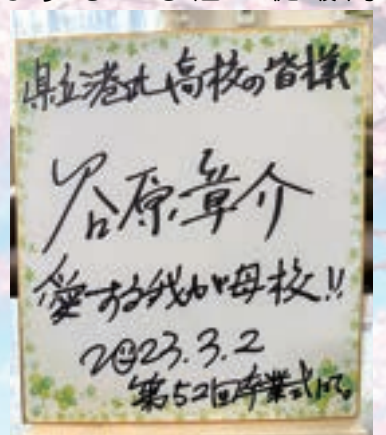 県立港北高校の皆様
谷原章介
愛する我が母校!!
2023.3.2
第52回卒業式にて。